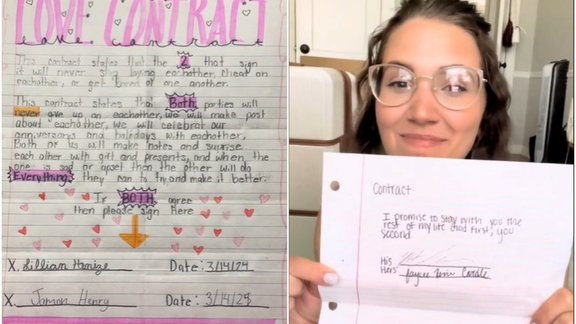 LOVE CONTRACT
love contract
This contract states that the 2 that sign
it will never stop loving eachother, cheat on
eachother, or get bored of one another.
This contract states that Both parties will
never give up on eachother, we will make post
about eachother, we will celebrat our
anniversarys and holidays with eachother,
Both of us will make notes and suprise
each other with gift and presents, and when the
one is sad or upset then the other will do
Everything they can to try and make it better.
If BOTH agree
then please sign Here
X. Lillian Hamize Date: 3/14/24
X. Jamon Henry Date: 3/14/25
Contract
I promise to stay with you the
rest of my life God first, you
second.
His
Hers